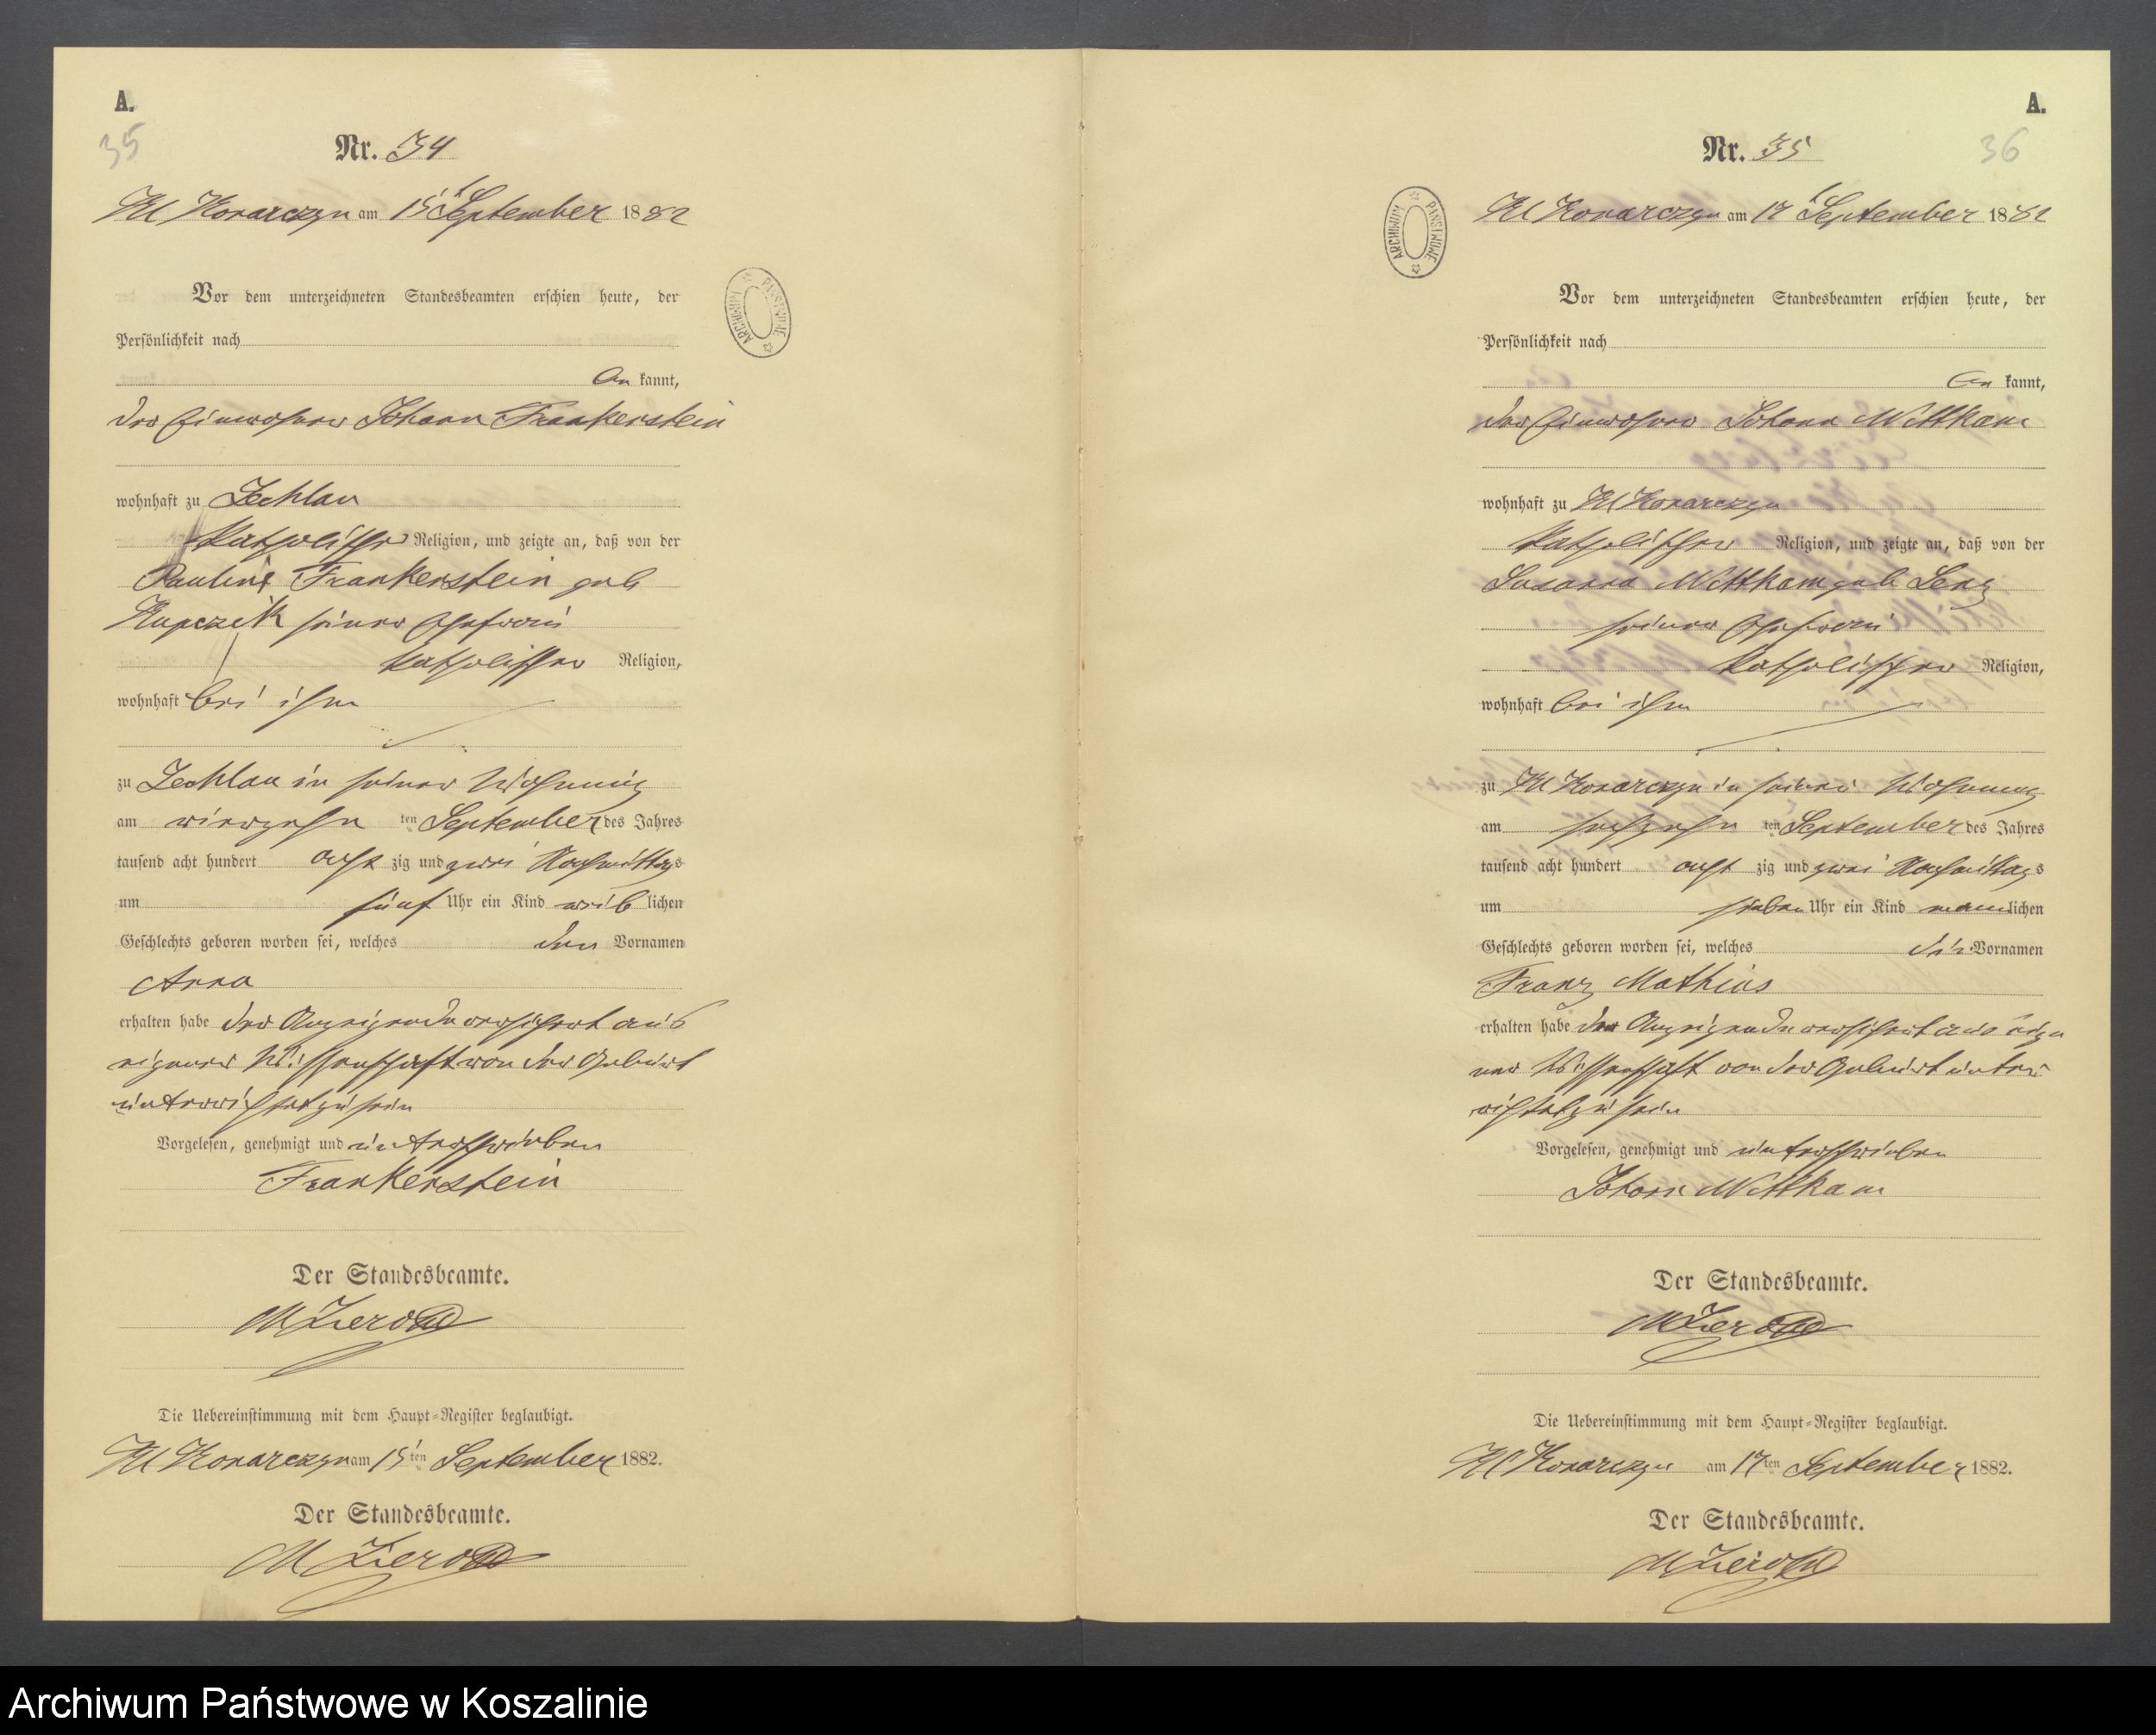 A.
35
Nr. 34
Kl Konarczyn am 15t September 1882
Vor dem unterzeichneten Standesbeamten erschien heute, der
Persönlichkeit nach
bekannt,
der Einwohner Johann Frankenstein
wohnhaft zu Zechlau
katholischer Religion, und zeigte an, daß von der
Pauline Frankenstein geb
Kupczik seiner Ehefrau
katholischer Religion,
wohnhaft bei ihm
zu Zechlau in seiner Wohnung
am vierzehn ten September des Jahres
tausend acht hundert acht zig und zwei Nachmittags
um fünf Uhr ein Kind weib lichen
Geschlechts geboren worden sei, welches den Vornamen
Anna
erhalten habe der Anzeigende versichert aus
eigener Wissenschaft von der Geburt
unterrichtet zu sein
Vorgelesen, genehmigt und unterschrieben
Frankenstein
Der Standesbeamte.
Die Uebereinstimmung mit dem Haupt-Register beglaubigt.
Kl Konarczyn am 15ten September 1882.
Der Standesbeamte.
ARCHIWUM PAŃSTWOWE
A.
36
Nr. 35
Kl Konarczyn am 17t September 1882
Vor dem unterzeichneten Standesbeamten erschien heute, der
Persönlichkeit nach
bekannt,
der Einwohner Johann Wittkam
wohnhaft zu Kl Konarczyn
katholischer Religion, und zeigte an, daß von der
Susanna Wittkam geb Lenz
seiner Ehefrau
katholischer Religion,
wohnhaft bei ihm
zu Kl Konarczyn in seiner Wohnung
am sechzehn ten September des Jahres
tausend acht hundert acht zig und zwei Nachmittags
um sieben Uhr ein Kind männlichen
Geschlechts geboren worden sei, welches die Vornamen
Franz Mathias
erhalten habe der Anzeigende versichert aus eige
ner Wissenschaft von der Geburt unter
richtet zu sein
Vorgelesen, genehmigt und unterschrieben
Johann Wittkam
Der Standesbeamte.
Die Uebereinstimmung mit dem Haupt-Register beglaubigt.
Kl Konarczyn am 17ten September 1882.
Der Standesbeamte.
ARCHIWUM PAŃSTWOWE
Archiwum Państwowe w Koszalinie